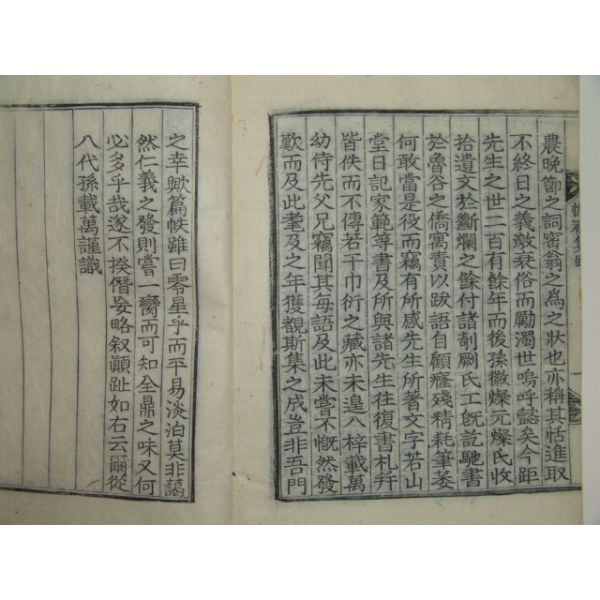 農晩節之詞密翁之爲之狀也亦稱其恬進取
不終日之義敵衰俗而勵濁世嗚呼懿矣今距
先生之世二百有餘年而後孫徽燦元燦氏收
拾遺文於斷爛之餘付諸剞劂氏工旣訖馳書
於魯谷之僑寓責以跋語自顧癃殘精耗筆萎
何敢當是役而竊有所感先生所著文字若山
堂日記家範等書及所與諸先生往復書札幷
皆佚而不傳若干巾衍之藏亦未遑入梓載萬
幼侍先父兄竊聞其每語及此未嘗不慨然發
歎而及此耄及之年獲覩斯集之成豈非吾門
之幸歟篇帙雖曰零星乎而平易淡泊莫非藹
然仁義之發則嘗一臠而可知全鼎之味又何
必多乎哉遂不揆僭妄略叙顚趾如右云爾從
八代孫載萬謹識